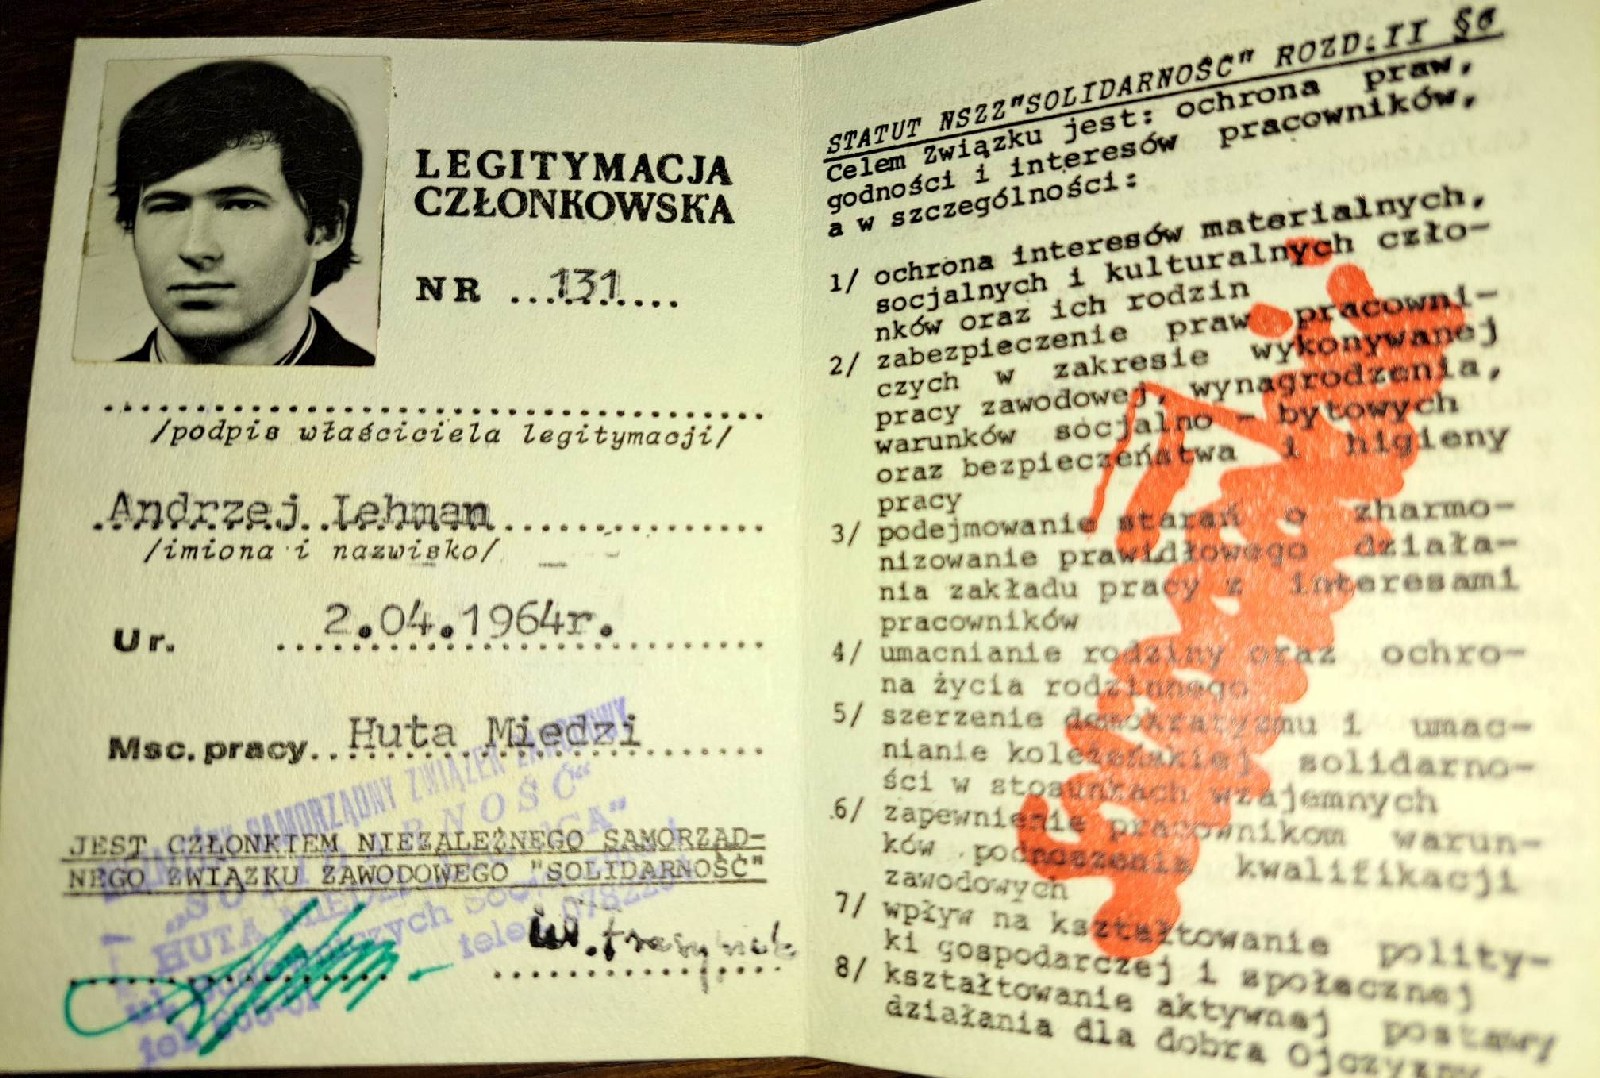 LEGITYMACJA
CZŁONKOWSKA
NR ...131.......
/podpis właściciela legitymacji/
Andrzej Lehman
/imiona i nazwisko/
Ur. 2.04.1964r.
Msc. pracy.. Huta Miedzi
SAMORZĄDNY ZWIĄZEK
JEST CZŁONKIEM NIEZALEŻNEGO SAMORZĄD-
NEGO ZWIĄZKU ZAWODOWEGO "SOLIDARNOŚĆ"
HUTA MIEDZI
STATUT NSZZ"SOLIDARNOŚĆ" ROZD.II §6
Celem Związku jest: ochrona praw,
godności i interesów pracowników,
a w szczególności:
1/ ochrona interesów materialnych,
socjalnych i kulturalnych czło-
nków oraz ich rodzin
2/ zabezpieczenie praw pracowni-
czych w zakresie wykonywanej
pracy zawodowej, wynagrodzenia,
warunków socjalno - bytowych
oraz bezpieczeństwa i higieny
pracy
3/ podejmowanie starań o zharmo-
nizowanie prawidłowego działa-
nia zakładu pracy z interesami
pracowników
4/ umacnianie rodziny oraz ochro-
na życia rodzinnego
5/ szerzenie demokratyzmu i umac-
nianie koleżeńskiej solidarno-
ści w stosunkach wzajemnych
6/ zapewnienie pracownikom warun-
ków podnoszenia kwalifikacji
zawodowych
7/ wpływ na kształtowanie polity-
ki gospodarczej i społecznej
8/ kształtowanie aktywnej postawy
działania dla dobra Ojczyzny